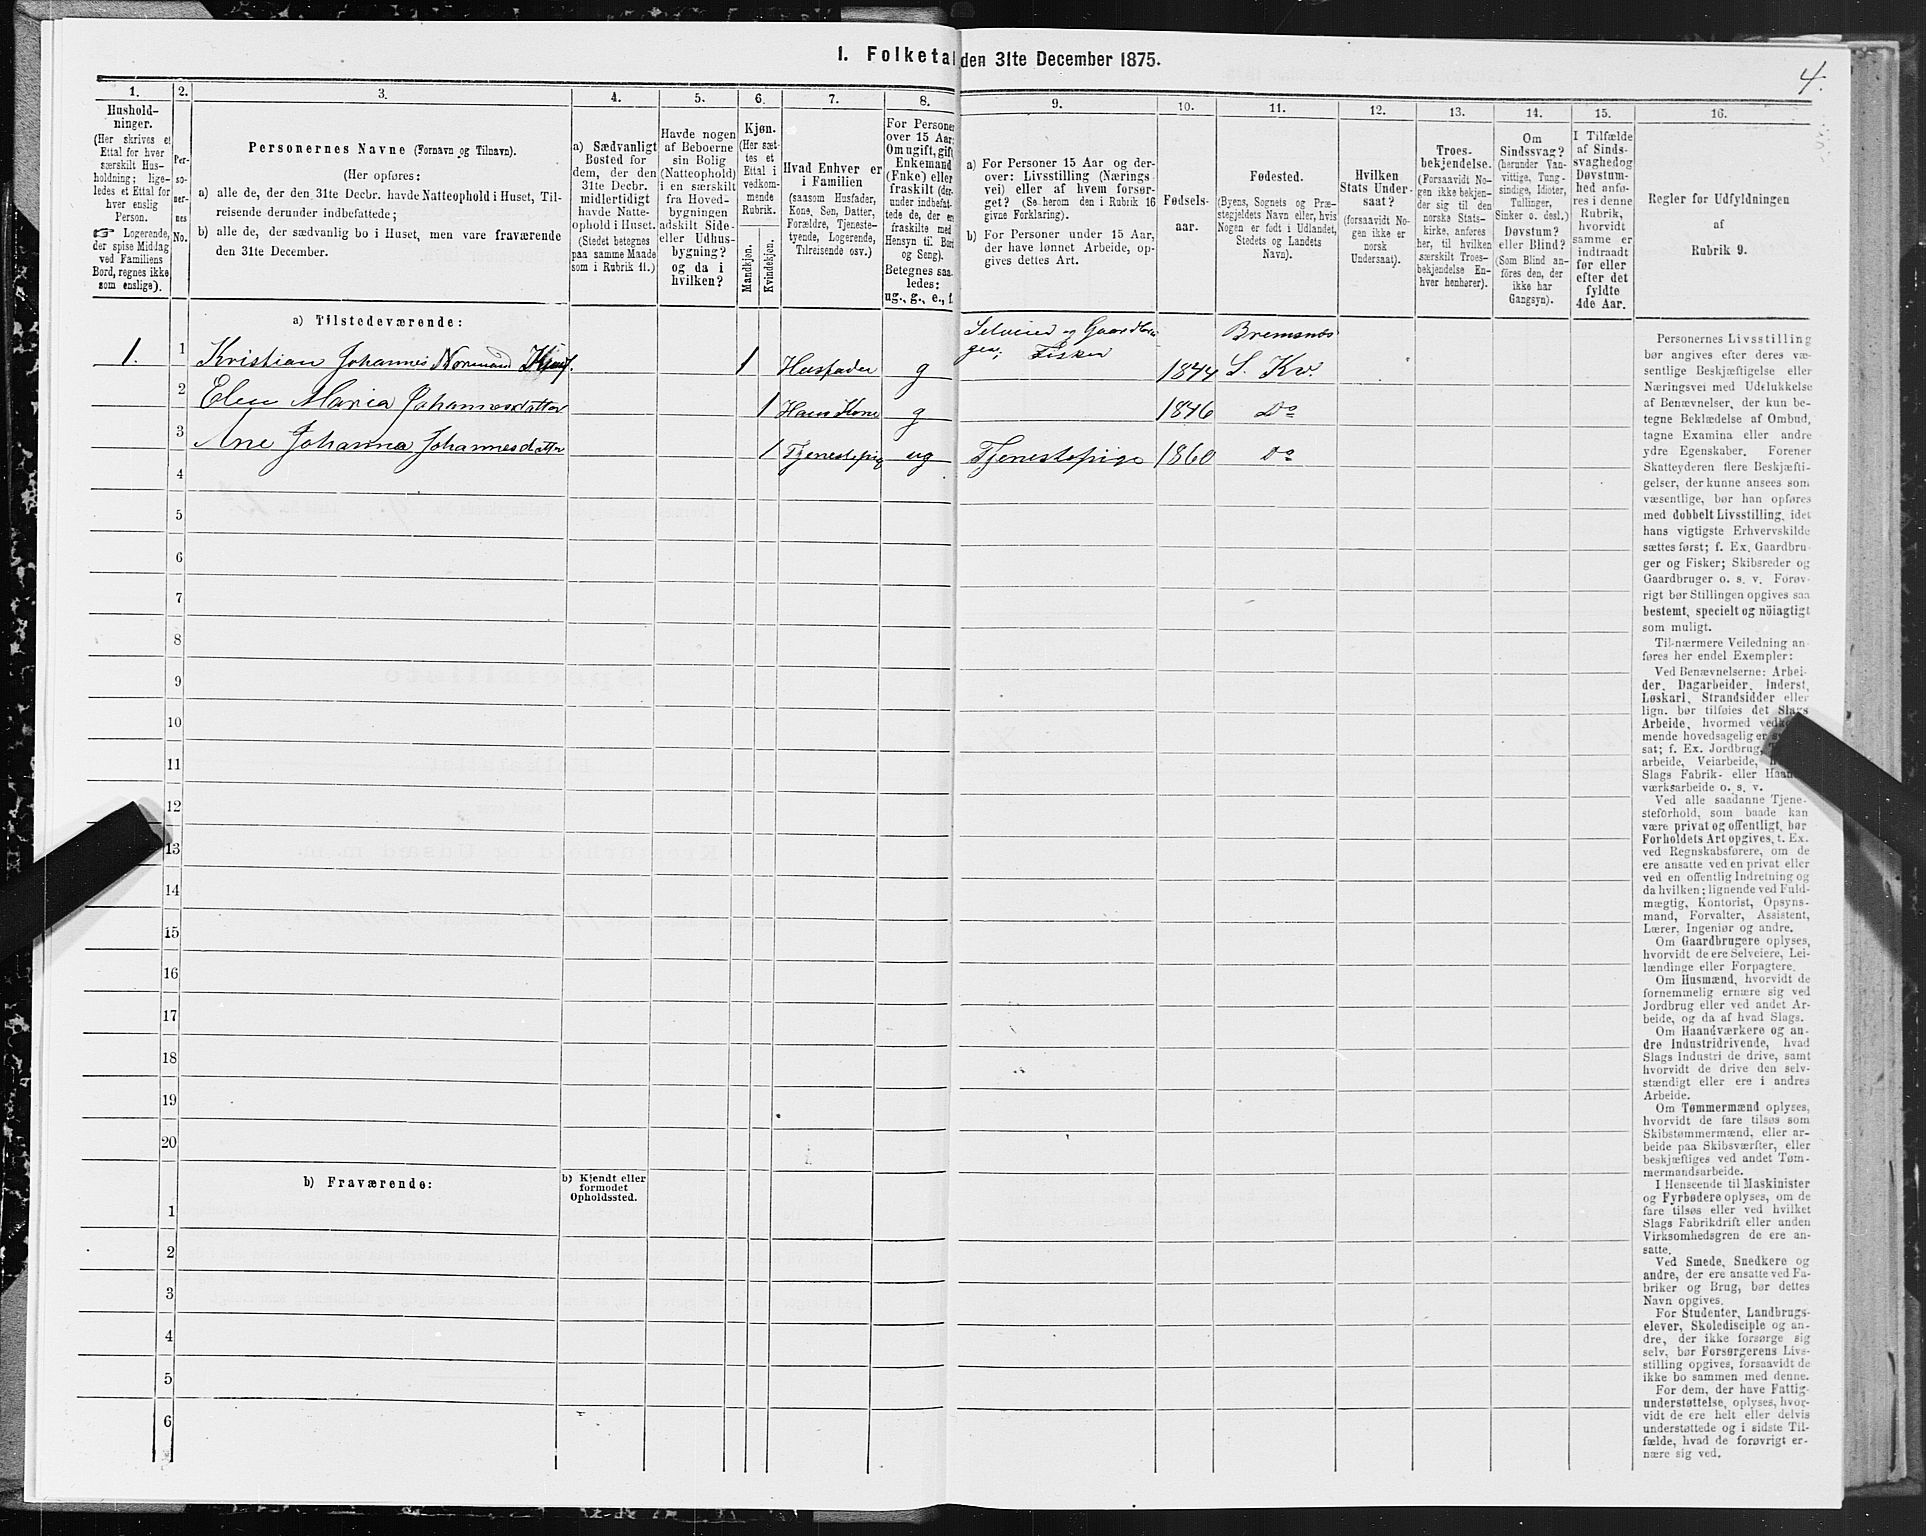 1. Folketal den 31te December 1875.
4.
1.
2.
3.
4.
5.
6.
7.
8.
9.
10.
11.
12.
13.
14.
15.
16.
Hushold-
ninger.
(Her skrives et
Ettal for hver
særskilt Hus-
holdning; lige-
ledes et Ettal for
hver enslig
Person.
☞ Logerende,
der spise Middag
ved Familiens
Bord, regnes ikke
som enslige).
Per-
so-
ner-
nes
No.
Personernes Navne (Fornavn og Tilnavn).
(Her opføres:
a) alle de, der den 31te Decbr. havde Natteophold i Huset, Til-
reisende derunder indbefattede;
b) alle de, der sædvanlig bo i Huset, men vare fraværende
den 31te December.
a) Sædvanligt
Bosted for
dem, der den
31te Decbr.
midlertidigt
havde Natte-
ophold i Huset.
(Stedet betegnes
paa samme Maade
som i Rubrik 11.)
Havde nogen
af Beboerne
sin Bolig
(Natteophold)
i en særskilt
fra Hoved-
bygningen
adskilt Side-
eller Udhus-
bygning?
og da i
hvilken?
Kjøn.
(Her sæt-
tes et
Ettal i
vedkom-
mende
Rubrik.
Mandkjøn.
Kvindekjøn.
Hvad Enhver er
i Familien
(saasom Husfader,
Kone, Søn, Datter,
Forældre, Tjeneste-
tyende, Logerende,
Tilreisende osv.)
For Personer
over 15 Aar:
Om ugift, gift,
Enkemand
(Enke) eller
fraskilt (der-
under indbefat-
tede de, der er
fraskilte med
Hensyn til Bord
og Seng).
Betegnes saa-
ledes:
ug., g., e., f.
a) For Personer 15 Aar og der-
over: Livsstilling (Nærings-
vei) eller af hvem forsør-
get? (Se herom den i Rubrik 16
givne Forklaring).
b) For Personer under 15 Aar,
der have lønnet Arbeide, op-
gives dettes Art.
Fødsels-
aar.
Fødested.
(Byens, Sognets og Præ-
stegjeldets Navn eller, hvis
Nogen er født i Udlandet,
Stedets og Landets
Navn).
Hvilken
Stats Under-
saat?
(forsaavidt No-
gen ikke er
norsk
Undersaat).
Troes-
bekjendelse.
(Forsaavidt No-
gen ikke bekjen-
der sig til den
norske Stats-
kirke, anføres
her, til hvilken
særskilt Troes-
bekjendelse En-
hver henhører).
Om
Sindssvag?
(herunder Van-
vittige, Tung-
sindige, Idioter,
Tullinger,
Sinker o. desl.)
Døvstum?
eller Blind?
(Som Blind an-
føres den, der
ikke har
Gangsyn).
I Tilfælde
af Sinds-
svaghed og
Døvstum-
hed anfø-
res i denne
Rubrik,
hvorvidt
samme er
indtraadt
før eller
efter det
fyldte
4de Aar.
Regler for Udfyldningen
af
Rubrik 9.
a) Tilstedeværende:
1. 1 Kristian Johannes Normand 1 Husfader g Selveier og Gaardbru
ger, Fisker 1844 Bremsnæs
S. Kr.
2 Elen Maria Johannesdatter 1 Hans Kone g 1846 Do
3 Ane Johanna Johannesdatter 1 Tjenestepig ug Tjenestepige 1860 Do
4
5
6
7
8
9
10
11
12
13
14
15
16
17
18
19
20
b) Fraværende:
b) Kjendt eller
formodet
Opholdssted.
1
2
3
4
5
6
Personernes Livsstilling
bør angives efter deres væ-
sentlige Beskjæftigelse eller
Næringsvei med Udelukkelse
af Benævnelser, der kun be-
tegne Beklædelse af Ombud,
tagne Examina eller andre
ydre Egenskaber. Forener
Skatteyderen flere Beskjæfti-
gelser, der kunne ansees som
væsentlige, bør han opføres
med dobbelt Livsstilling, idet
hans vigtigste Erhvervskilde
sættes først; f. Ex. Gaardbru-
ger og Fisker; Skibsreder og
Gaardbruger o. s. v. Forøv-
rigt bør Stillingen opgives saa
bestemt, specielt og nöiagtigt
som muligt.
Til nærmere Veiledning an-
føres her endel Exempler:
Ved Benævnelserne: Arbei-
der, Dagarbeider, Inderst,
Løskarl, Strandsidder eller
lign. bør tilføies det Slags
Arbeide, hvormed
mende hovedsagelig er
sat; f. Ex. Jordbrug,
arbeide, Veiarbeide,
Slags Fabrik- eller
værksarbeide o. s. v.
Ved alle saadanne Tjene-
steforhold, som baade kan
være privat og offentligt, bør
Forholdets Art opgives, t. Ex.
ved Regnskabsførere, om de
ere ansatte ved en privat eller
ved en offentlig Indretning og
da hvilken; lignende ved Fuld-
mægtig, Kontorist, Opsyns-
mand, Forvalter, Assistent,
Lærer, Ingeniør og andre.
Om Gaardbrugere oplyses,
hvorvidt de ere Selveiere, Lei-
lændinge eller Forpagtere.
Om Husmænd, hvorvidt de
fornemmelig ernære sig ved
Jordbrug eller ved andet Ar-
beide, og da af hvad Slags.
Om Haandværkere og an-
dre Industridrivende, hvad
Slags Industri de drive, samt
hvorvidt de drive den selv-
stændigt eller ere i andres
Arbeide.
Om Tømmermænd oplyses,
hvorvidt de fare tilsøs som
Skibstømmermænd, eller ar-
beide paa Skibsværfter, eller
beskjæftiges ved andet Tøm-
mermandsarbeide.
I Henseende til Maskinister
og Fyrbødere oplyses, om de
fare tilsøs eller ved hvilket
Slags Fabrikdrift eller anden
Virksomhedsgren de ere an-
satte.
Ved Smede, Snedkere og
andre, der ere ansatte ved Fa-
briker og Brug, bør dettes
Navn opgives.
For Studenter, Landbrugs-
elever, Skoledisciple og an-
dre, der ikke forsørge sig
selv, bør Forsørgerens Livs-
stilling opgives, forsaavidt de
ikke bo sammen med denne.
For dem, der have Fattig-
understøttelse, oplyses, hvor-
vidt de ere helt eller delvis
understøttede og i sidste Til-
fælde, hvad de forøvrigt er-
nære sig ved.